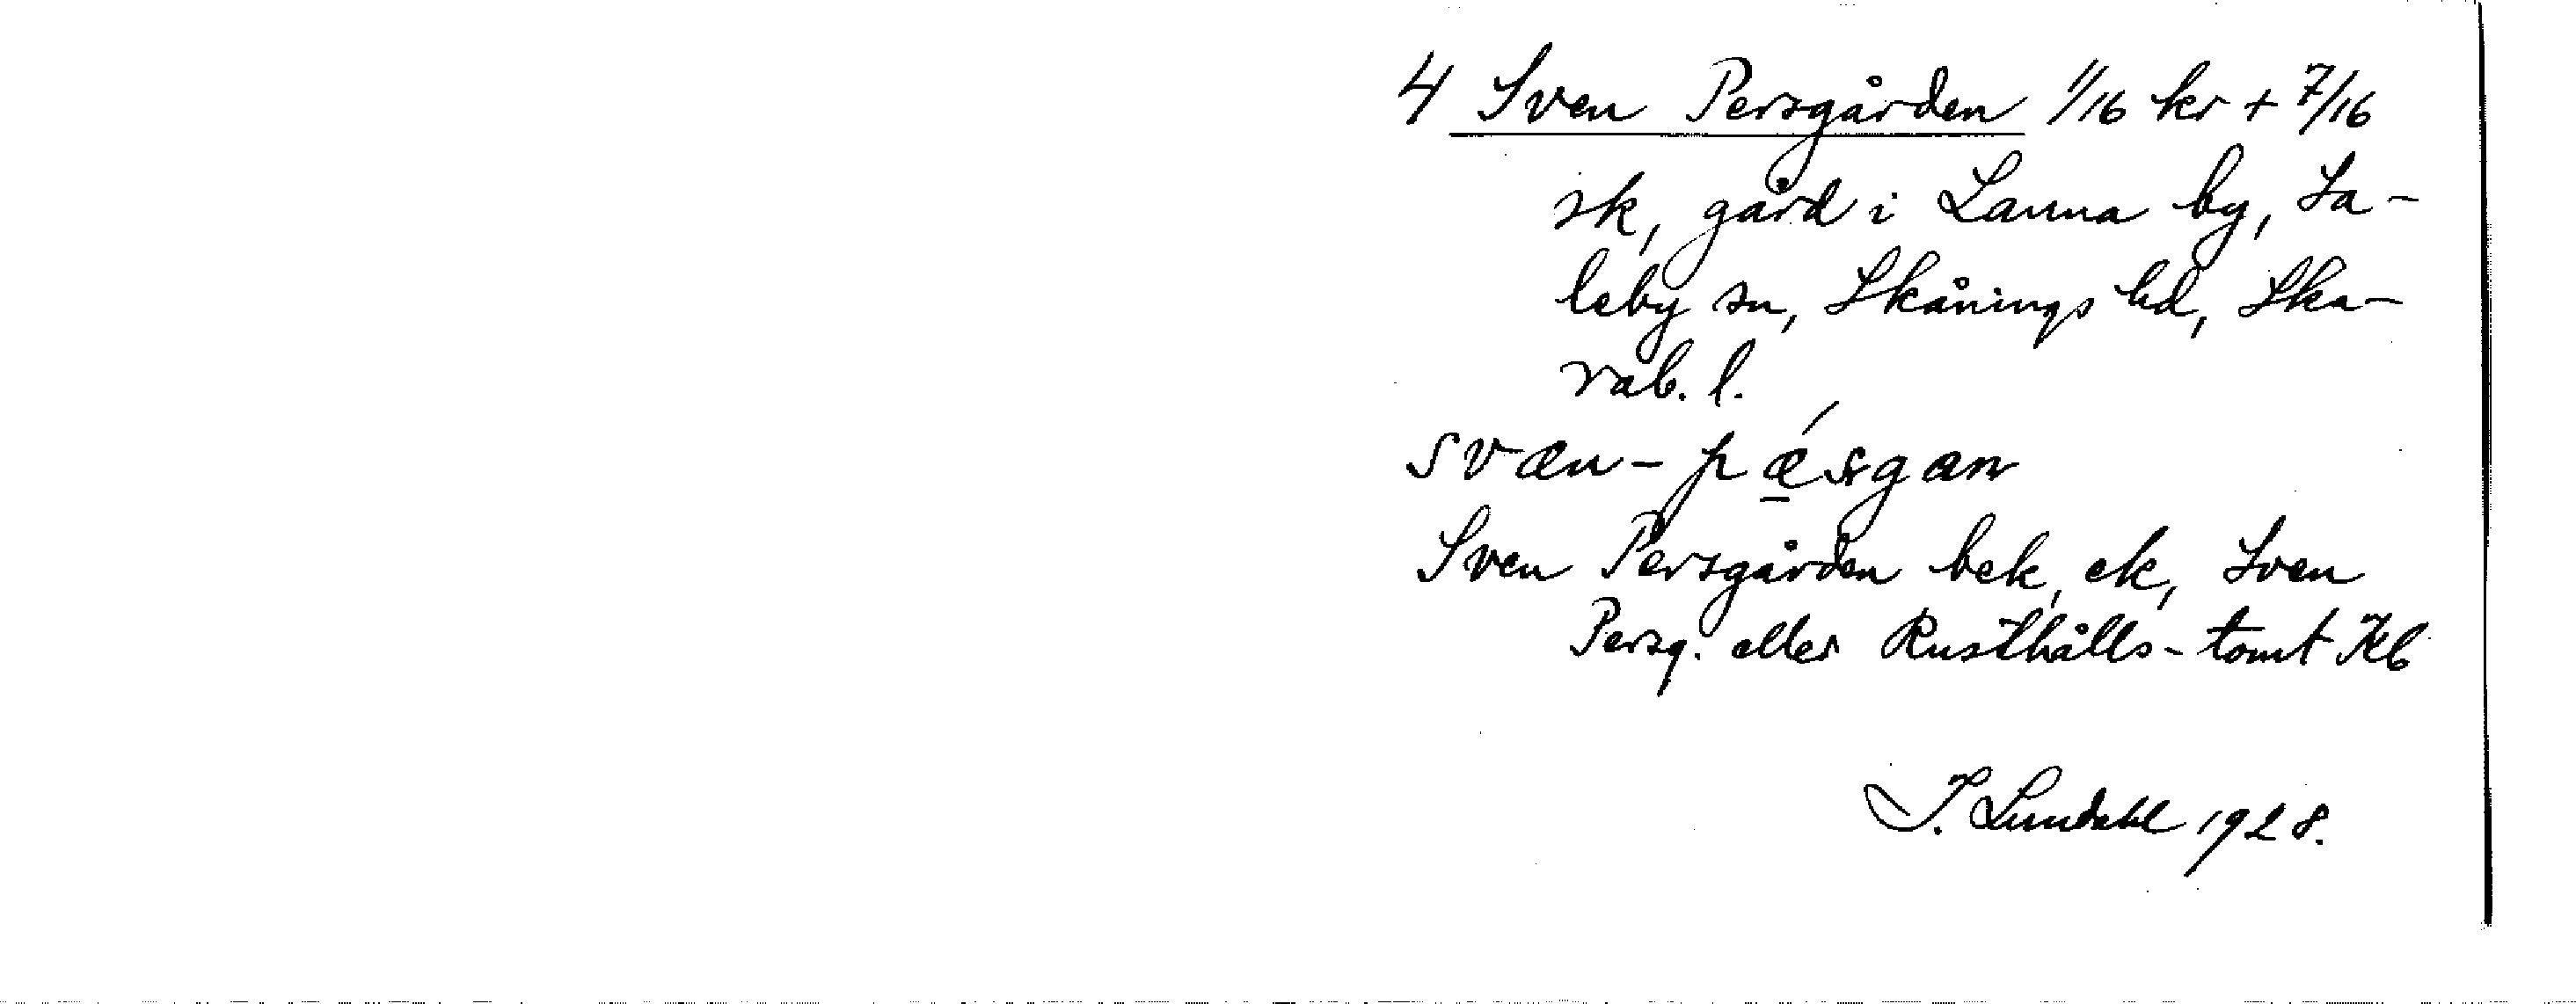 4 Sven Persgården 1/16 kr + 7/16
sk, gård i Lanna by, Sa-
leby sn, Skånings hd, Ska-
rab. l.
svæn-pǽsgan
Sven Persgården bek, ek, Sven
Persg. eller Rusthålls-tomt Kb
I. Lundahl 1928.